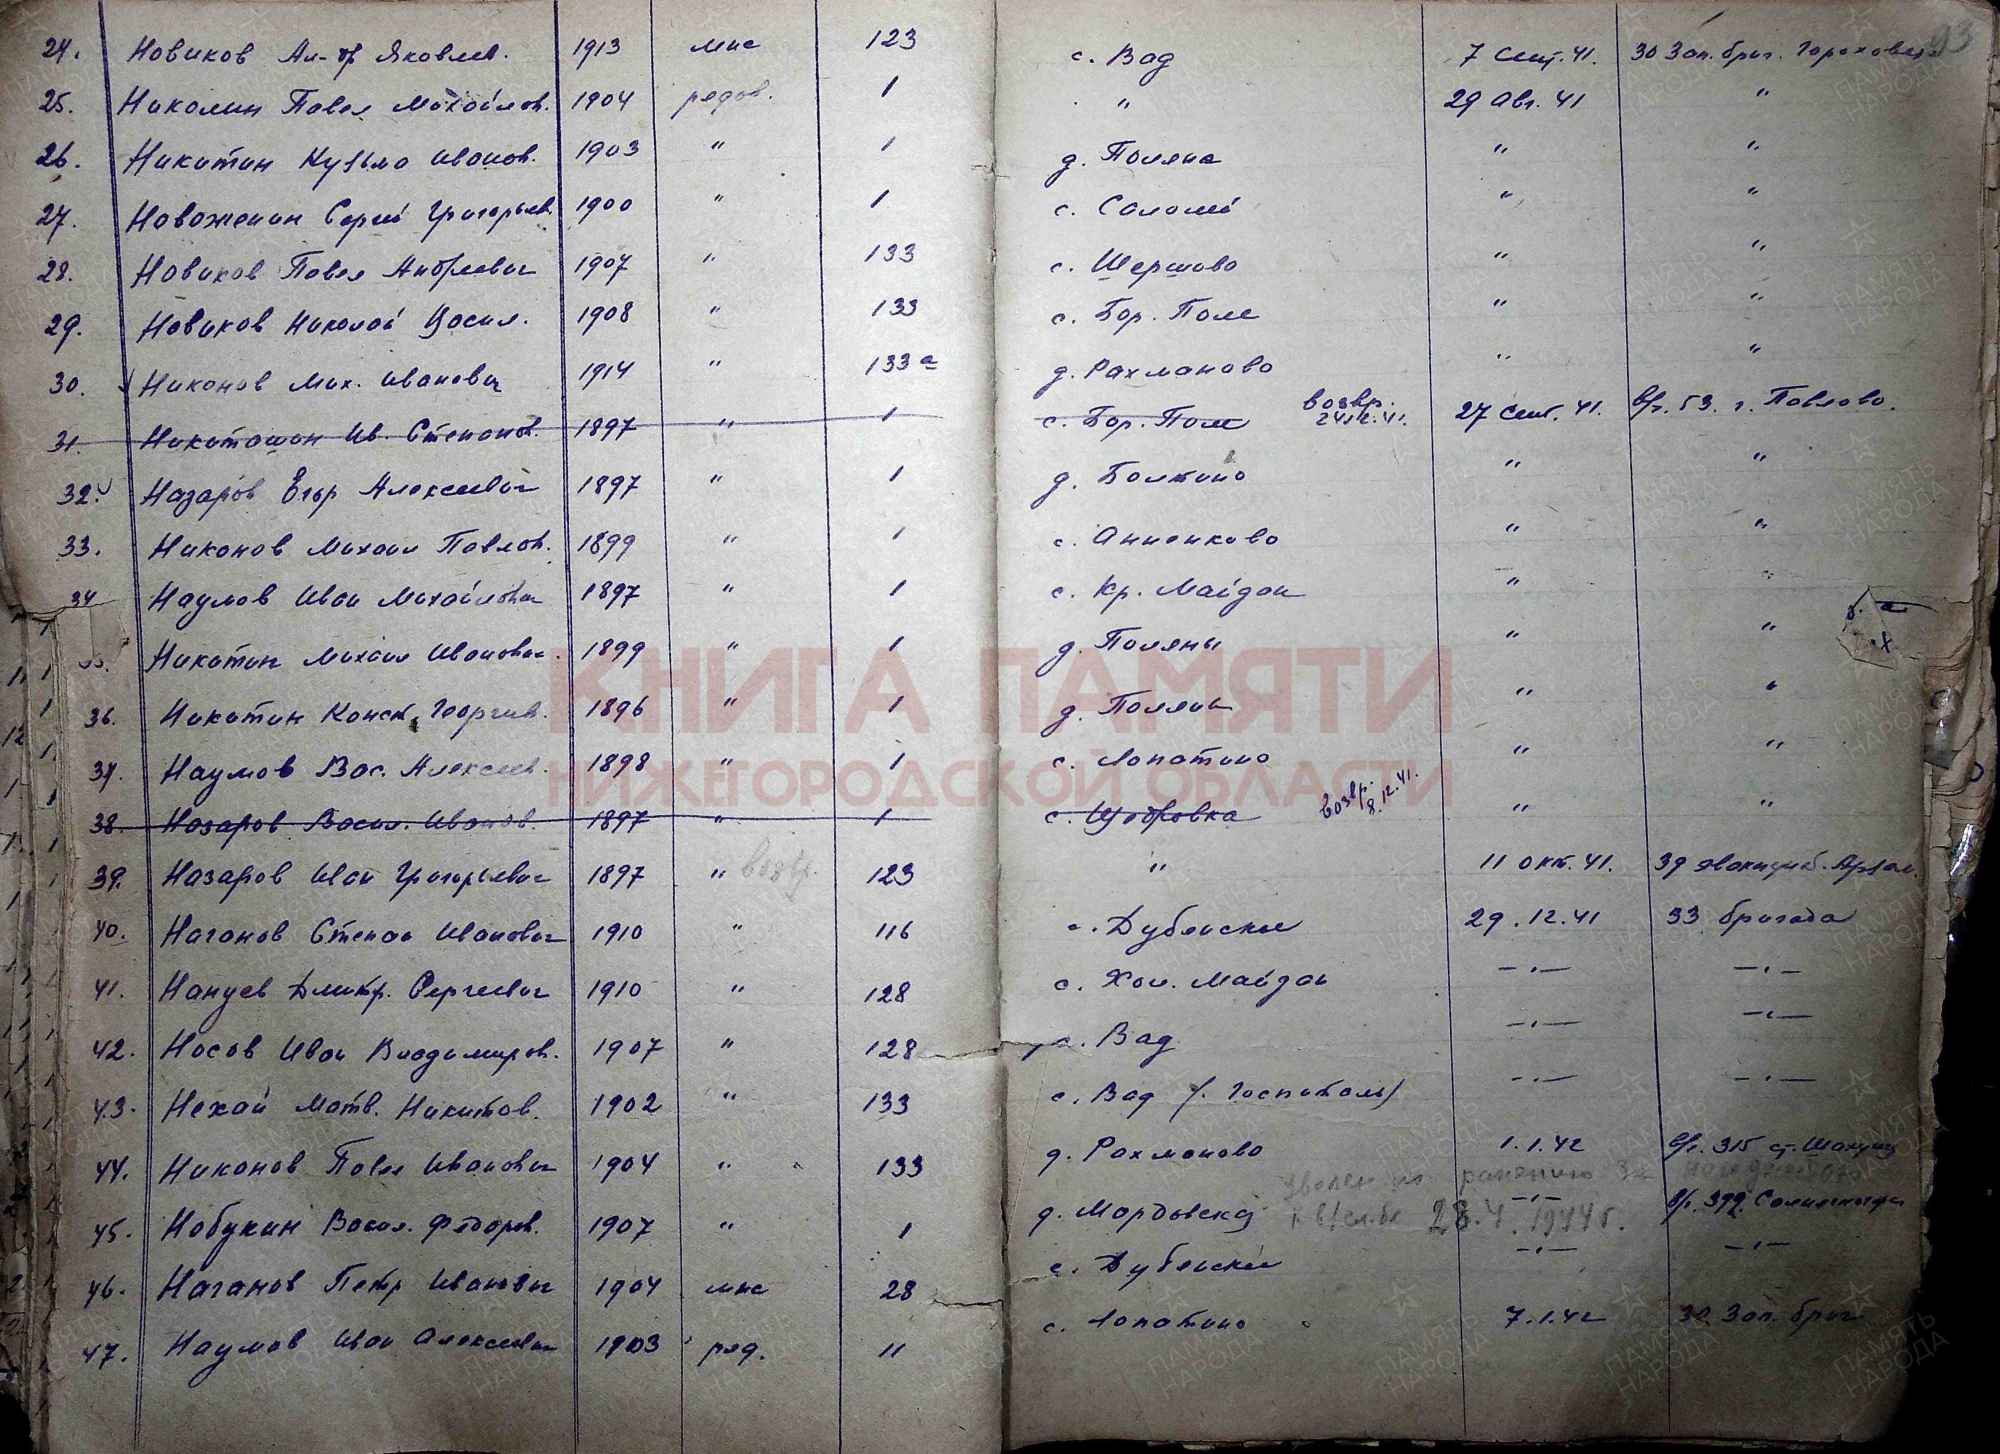 93
24. Новиков Ал-др Яковлев. 1913 мнс 123 с. Вад 7 Сент. 41. 30 Зап. бриг. Гороховец
25. Николин Павел Михайлов. 1904 рядов. 1 " 29 Авг. 41 "
26. Никитин Кузьма Иванов. 1903 " 1 д. Поляна " "
27. Новоженин Сергей Григорьев. 1900 " 1 с. Саломей " "
28. Новиков Павел Андреевич 1907 " 133 с. Шершово " "
29. Новиков Николай Васил. 1908 " 133 с. Бор. Поле " "
30. Никонов Мих. Иванович 1914 " 133а д. Рахманово " "
31. Никиташин Ив. Степанов. 1897 " 1 с. Бор. Поле возвр. 24.12.41. 27 Сент. 41. в/ч. 53. г. Павлово.
32. Назаров Егор Алексеевич 1897 " 1 д. Болтино " "
33. Никонов Михаил Павлов. 1899 " 1 с. Анненково " "
34 Наумов Иван Михайлович 1897 " 1 с. Кр. Майдан " "
Никитин Михаил Иванович. 1899 " 1 д. Поляны " "
36. Никитин Конст. Георгиев. 1896 " 1 д. Поляны " "
37. Наумов Вас. Алексеев. 1898 " 1 с. Лопатино " "
38. Назаров Васил. Иванов. 1897 " 1 с. Щедровка возвр. 8.12.41. " "
39. Назаров Иван Григорьевич 1897 " возвр. 123 " 11 окт. 41. 39 эвакуац. Арзам.
40. Наганов Степан Иванович 1910 " 116 с. Дубенское 29.12.41 33 бригада
41. Нануев Дмитр. Сергеевич 1910 " 128 с. Хол. Майдан —"— —"—
42. Носов Иван Владимиров. 1907 " 128 с. Вад —"— —"—
43. Нехай Матв. Никитов. 1902 " 133 с. Вад (. Госпиталь) —"— —"—
44. Никонов Павел Иванович 1904 " 133 д. Рахманово 1.1.42 в/ч. 315 ст. Шакуны
уволен по ранению
45. Нобукин Васил. Федоров. 1907 " 1 д. Мордовской —"— в/ч. 392.
28.4.1944 г.
46. Наганов Петр Иванович 1904 мнс 28 с. Дубенский —"— —"—
47. Наумов Иван Алексеевич 1903 ряд. 11 с. Лопатино 7.1.42 30 Зап. бриг
КНИГА ПАМЯТИ
НИЖЕГОРОДСКОЙ ОБЛАСТИ
ПАМЯТЬ НАРОДА